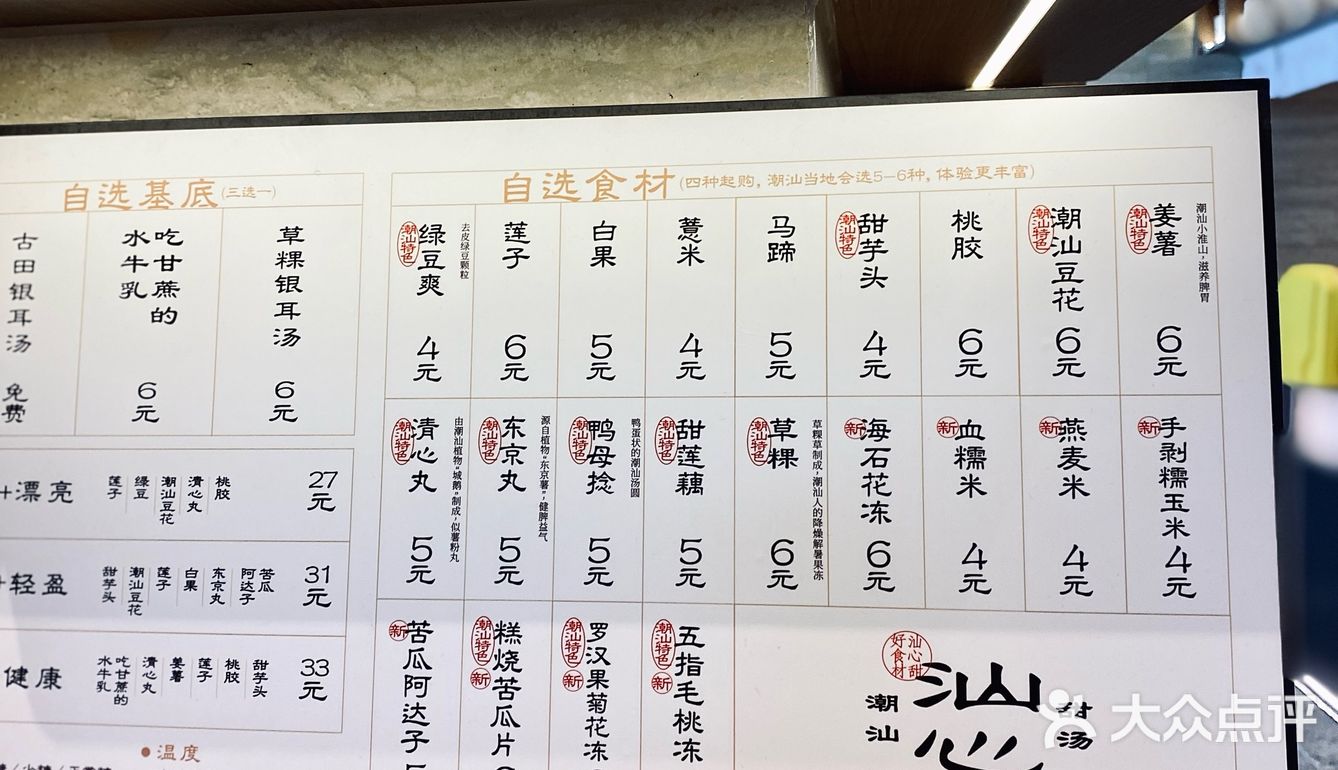 自选基底(三选一)
古田银耳汤
免费
吃甘蔗的
水牛乳
6元
草粿银耳汤
6元
+漂亮
莲子
绿豆
潮汕豆花
清心丸
桃胶
27元
+轻盈
甜芋头
潮汕豆花
莲子
白果
东京丸
苦瓜
阿达子
31元
健康
吃甘蔗的
水牛乳
清心丸
姜薯
莲子
桃胶
甜芋头
33元
温度
自选食材(四种起购, 潮汕当地会选5-6种, 体验更丰富)
潮汕特色
绿豆爽
去皮绿豆颗粒
4元
莲子
6元
白果
5元
薏米
4元
马蹄
5元
潮汕特色
甜芋头
4元
桃胶
6元
潮汕特色
潮汕豆花
6元
潮汕特色
姜薯
潮汕小淮山,滋养脾胃
6元
潮汕特色
清心丸
由潮汕植物"城鹅"制成,似薯粉丸
5元
潮汕特色
东京丸
源自植物"东京薯",健脾益气
5元
潮汕特色
鸭母捻
鸭蛋状的潮汕汤圆
5元
潮汕特色
甜莲藕
5元
潮汕特色
草粿
草粿草制成,潮汕人的降燥解暑果冻
6元
新
海石花冻
6元
新
血糯米
4元
新
燕麦米
4元
新
手剥糯玉米
4元
新
苦瓜阿达子
潮汕特色
新
糕烧苦瓜片
潮汕特色
新
罗汉果菊花冻
潮汕特色
新
五指毛桃冻
汕心甜
好食材
潮汕
汕心
甜汤
大众点评